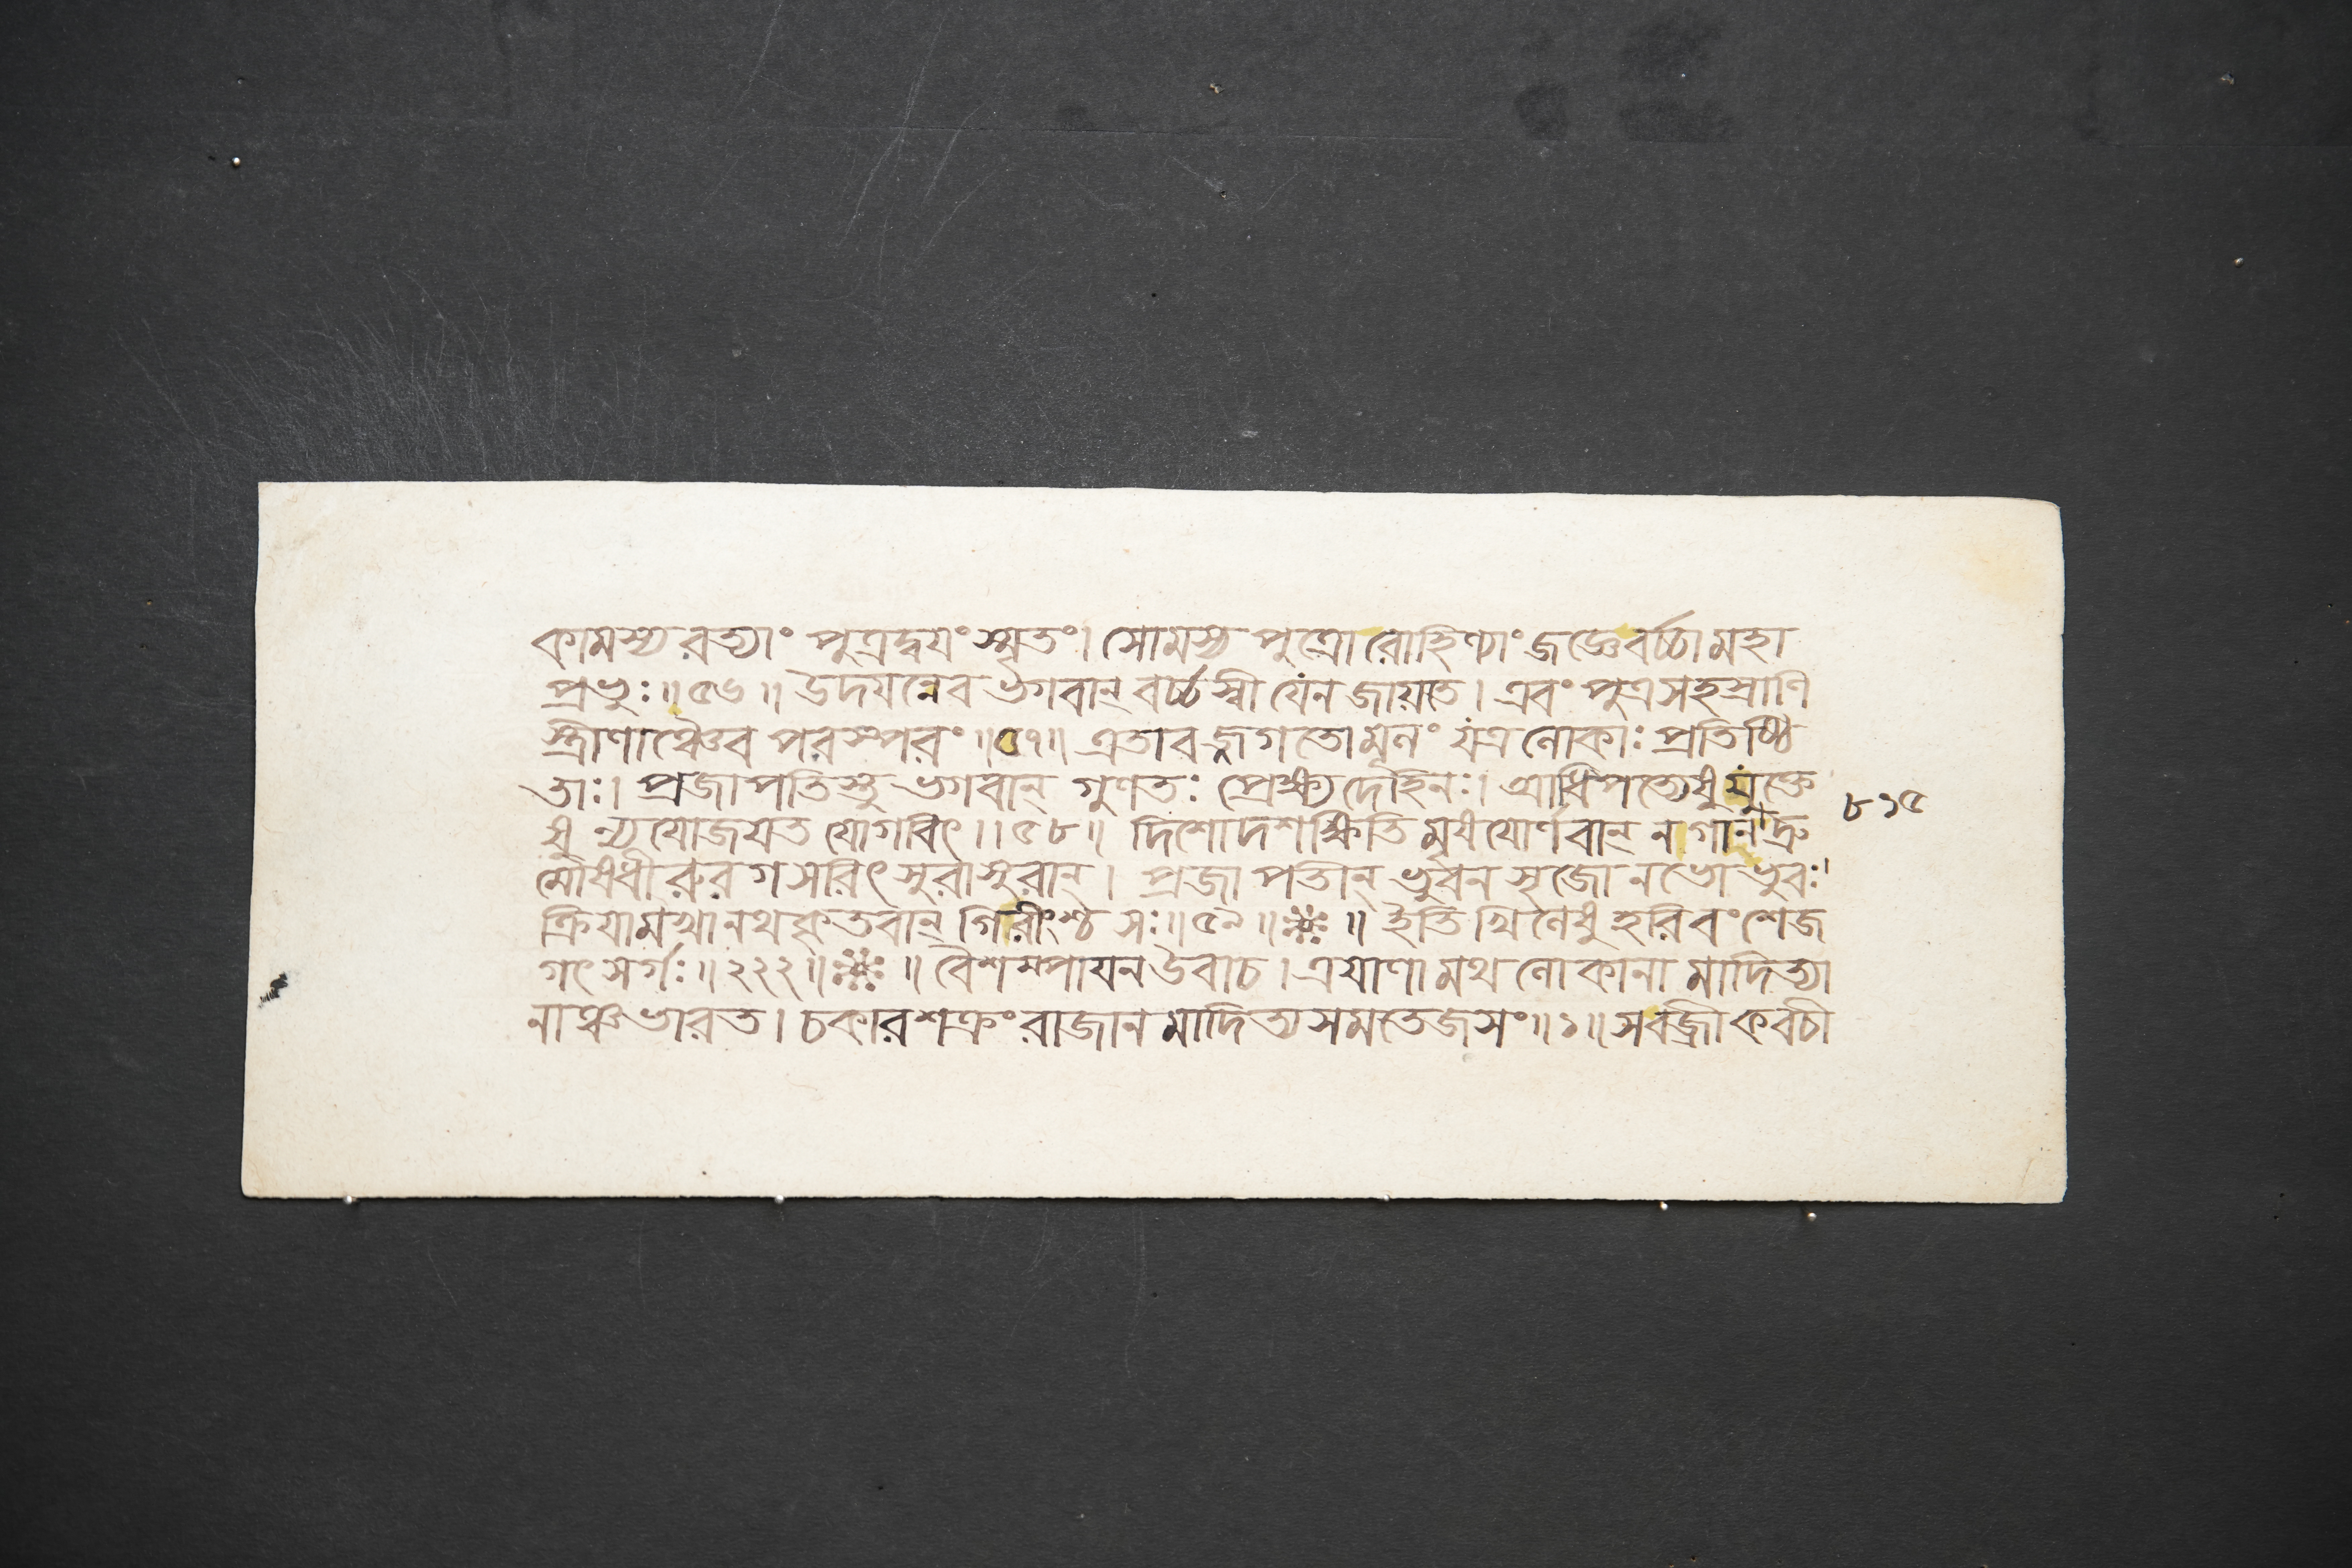 কামস্য রত্যাং পুত্রদ্বয়ং স্মৃতং। সোমস্য পুত্রো রোহিণ্যাং জজ্ঞে বর্চ্চা মহা
প্রভুঃ॥৫৬॥ উদয়ন্নেব ভগবান্ বর্চ্চস্বী যেন জায়তে। এবং পুত্রসহস্রাণি
স্ত্রীণাঞ্চৈব পরস্পরং॥৫৭॥ এতাবজ্জগতো মূনং যত্র লোকাঃ প্রতিষ্ঠি
তাঃ। প্রজাপতিস্তু ভগবান্ গুণতঃ প্রেক্ষ্য দেহিনঃ। আধিপত্যেষু যুক্তে
ষু ন্যযোজয়ত যোগবিৎ।।৫৮॥ দিশো দশ ক্ষিতি মৃষয়োর্ণবান্ নগান্ দ্রু
মৌষধী রুরগ সরিৎ সুরাসুরান্। প্রজাপতীন্ ভুবন সৃজো নভো ভুবঃ।
ক্রিয়া মখানথ কৃতবান্ গিরীংশ্চ সঃ॥৫৯॥ ॥ ইতি খিলেষু হরিবংশে জ
গৎ সর্গঃ॥২২২॥ ॥ বৈশম্পায়ন উবাচ। ত্রয়াণামথ লোকানা মাদিত্যা
নাঞ্চ ভারত। চকার শক্রং রাজান মাদিত্য সমতেজসং॥১॥ স বজ্রী কবচী
৮১৫